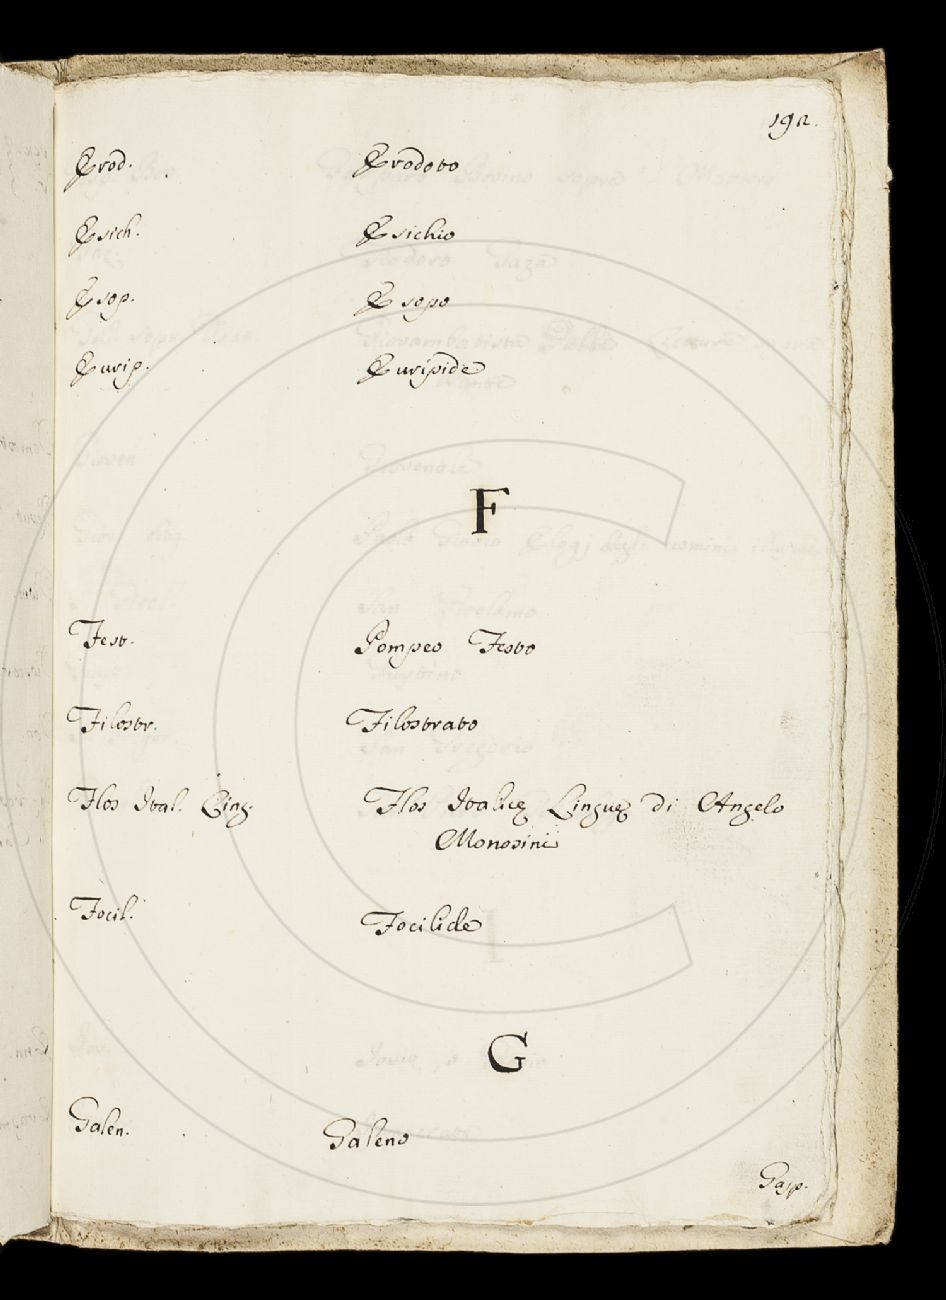 192.
Erod. Erodoto
Esich. Esichio
Esop. Esopo
Eurip. Euripide
F
Fest. Pompeo Festo
Filostr. Filostrato
Flos Ital. Ling. Flos Italicę Linguę di Angelo
Monosini
Focil. Focilide
G
Galen. Galeno
Gasp.